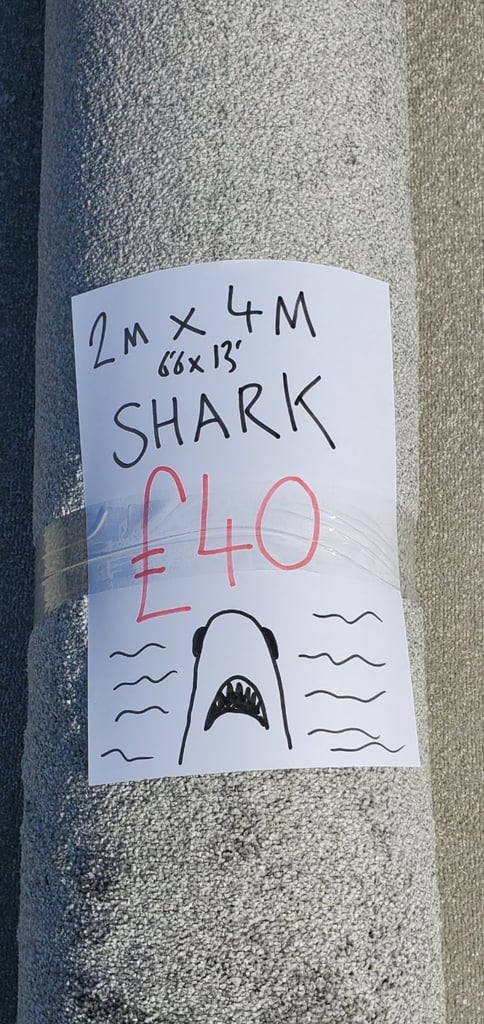 2M x 4M
6'6 x 13'
SHARK
£40